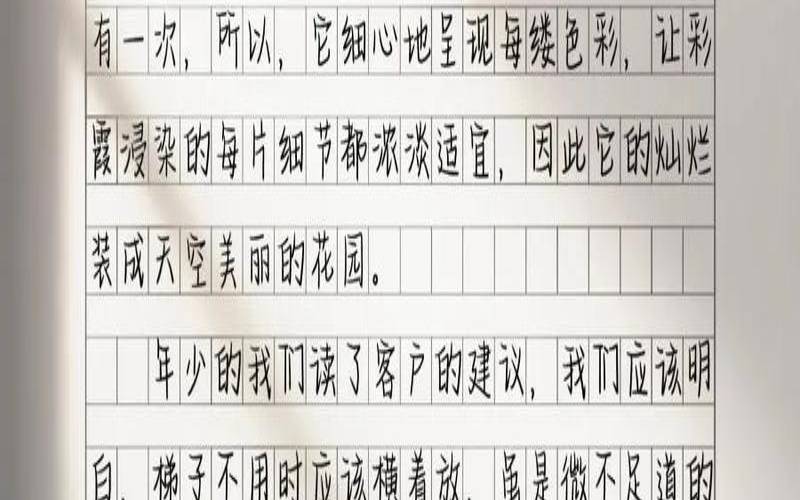 有一次，所以，它细心地呈现每缕色彩，让彩
霞浸染的每片细节都浓淡适宜，因此它的灿烂
装成天空美丽的花园。
年少的我们读了客户的建议，我们应该明
白，梯子不用时应该横着放，虽是微不足道的